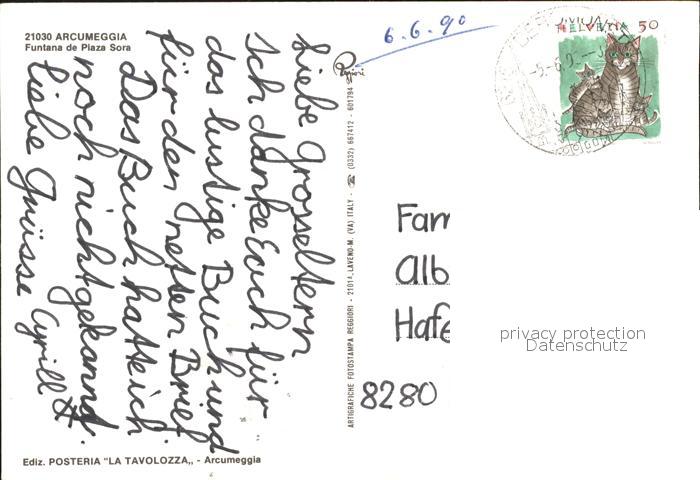 21030 ARCUMEGGIA
Funtana de Plaza Sora
Liebe Grosseltern
Ich danke Euch für
das lustige Buch und
für den netten Brief
Das Buch hatte ich
noch nicht gekannt.
liebe Grüsse Cyrill H.
Ediz. POSTERIA "LA TAVOLOZZA,, - Arcumeggia
ARTIGRAFICHE FOTOSTAMPA REGGIORI - 21014 LAVENO-M. (VA) ITALY - ☎ (0332) 667412 - 601794
Reggiori
6.6.90
HELVETIA 50
Fam
Alb
Hafe
8280
privacy protection
Datenschutz